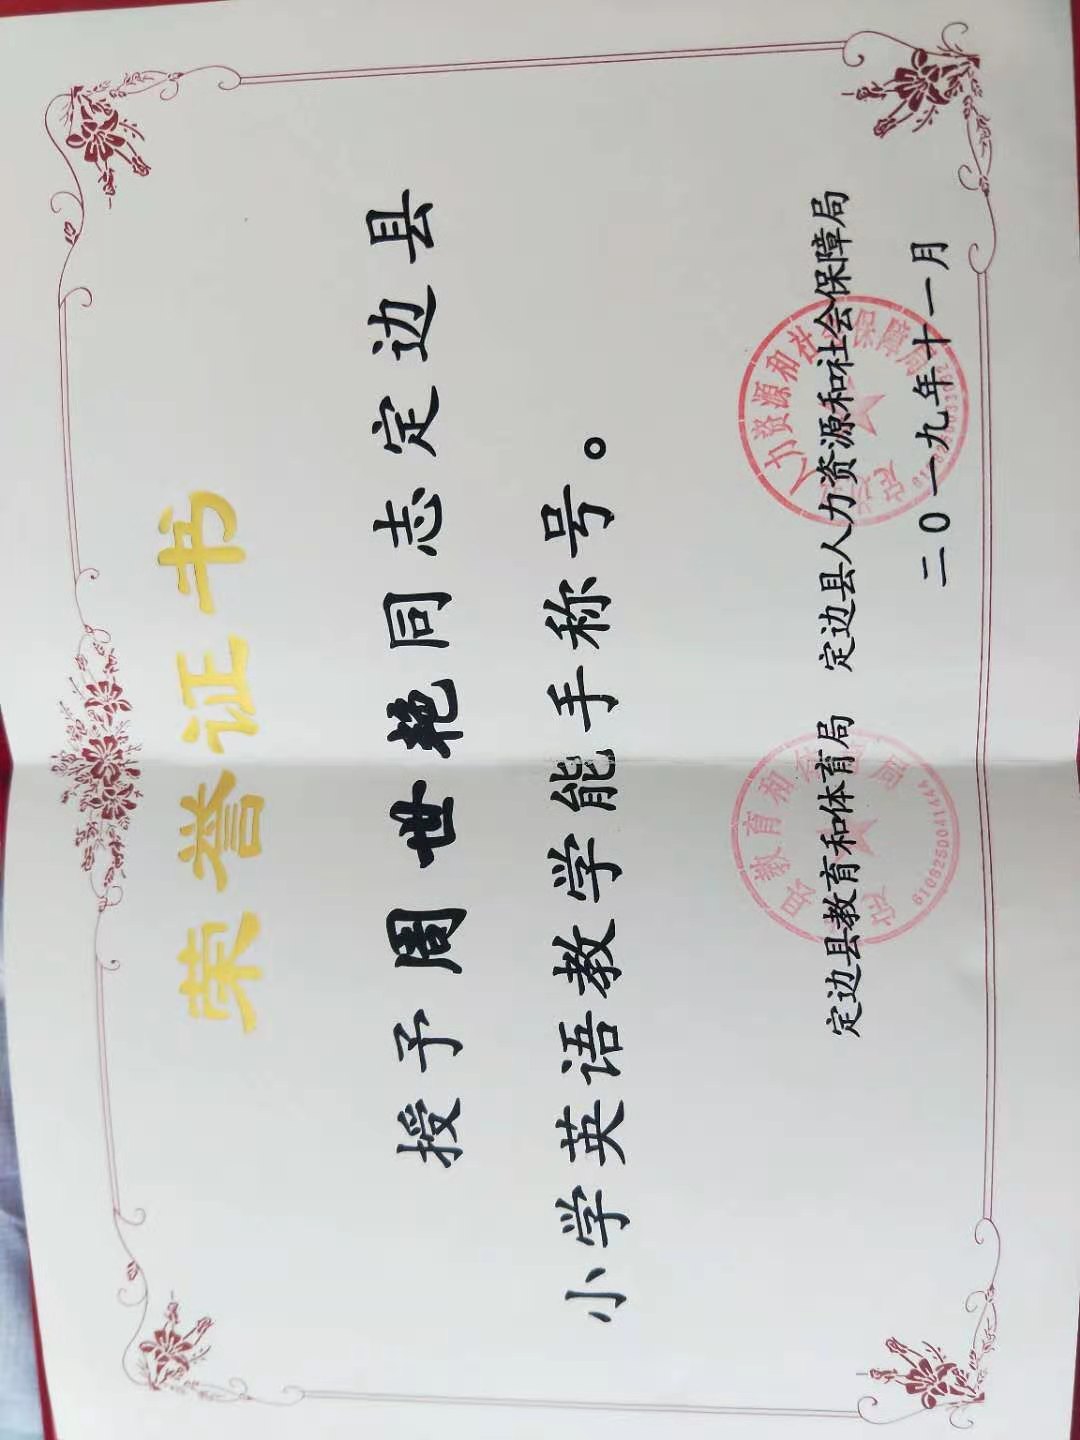 荣誉证书
授予周世艳同志定边县
小学英语教学能手称号。
定边县教育和体育局 定边县人力资源和社会保障局
二0一九年十一月
教育和体育局
6108250041444
人力资源和社会保障局